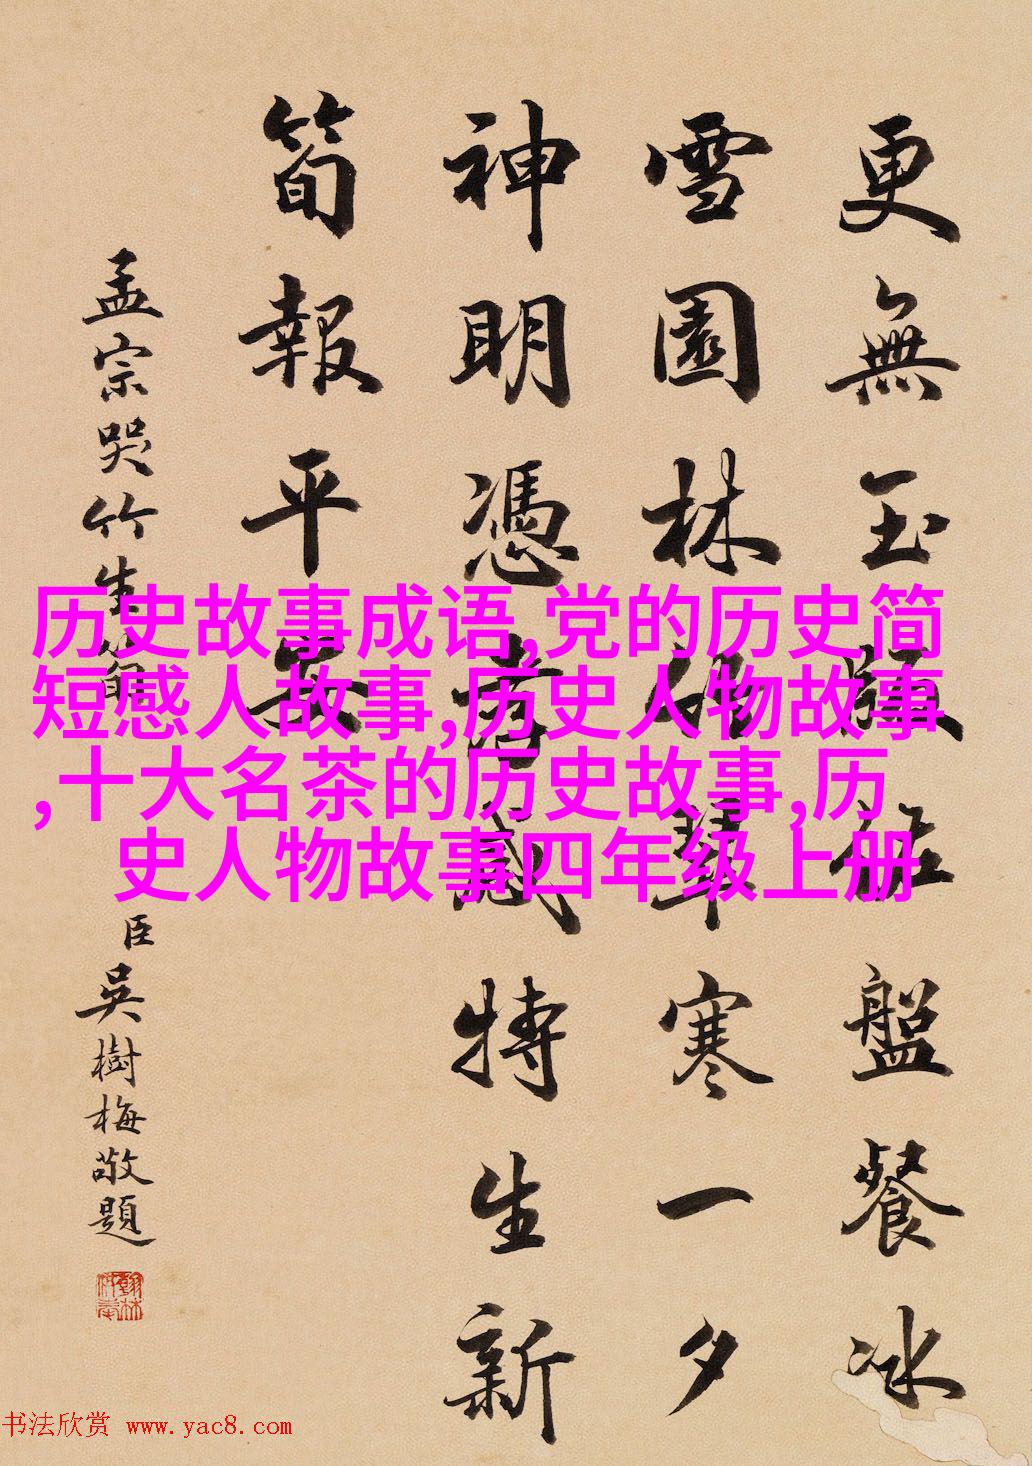 更無玉版佐盤餐冰
雪園林翠寒一夕
神明憑孝感特生新
筍報平安
孟宗哭竹生筍
臣吳樹梅敬題
历史故事成语,党的历史简
短感人故事,历史人物故事
,十大名茶的历史故事,历
史人物故事四年级上册
书法欣赏 www.yac8.com